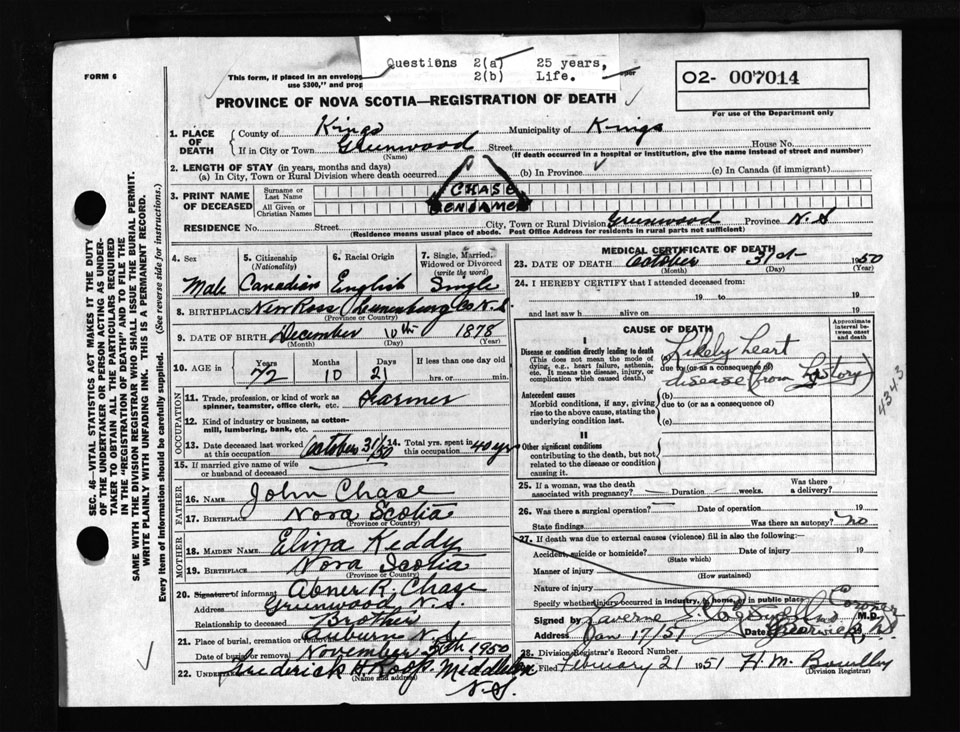 FORM 6
Questions 2(a) 25 years,
2(b) Life.
This form, if placed in an envelope
use $300," and prop
02- 007014
For use of the Department only
PROVINCE OF NOVA SCOTIA—REGISTRATION OF DEATH
1. PLACE OF DEATH
County of Kings Municipality of Kings
If in City or Town Greenwood Street House No.
(Name) (If death occurred in a hospital or institution, give the name instead of street and number)
2. LENGTH OF STAY (in years, months and days)
(a) In City, Town or Rural Division where death occurred (b) In Province (c) In Canada (if immigrant)
3. PRINT NAME OF DECEASED
Surname or Last Name CHASE
All Given or Christian Names
RESIDENCE No. Street City, Town or Rural Division Greenwood Province N.S
(Residence means usual place of abode. Post Office Address for residents in rural parts not sufficient)
4. Sex
Male
5. Citizenship
(Nationality)
Canadian
6. Racial Origin
English
7. Single, Married, Widowed or Divorced
(write the word)
Single
8. BIRTHPLACE New Ross Lunenburg Co N.S
(Province or Country)
9. DATE OF BIRTH December 10th 1878
(Month) (Day) (Year)
10. AGE in Years Months Days If less than one day old
72 10 21 hrs. or min.
OCCUPATION
11. Trade, profession, or kind of work as spinner, teamster, office clerk, etc. Farmer
12. Kind of industry or business, as cotton-mill, lumbering, bank, etc.
13. Date deceased last worked at this occupation October 31/50
14. Total yrs. spent in this occupation 40 yrs
15. If married give name of wife or husband of deceased
FATHER
16. Name John Chase
17. Birthplace Nova Scotia
(Province or Country)
MOTHER
18. MAIDEN NAME Eliza Keddy
19. BIRTHPLACE Nova Scotia
(Province or Country)
20. Signature of informant Abner R. Chase
Address Greenwood N.S.
Relationship to deceased Brother
21. Place of burial, cremation or removal Auburn N.S.
Date of burial or removal November 1950
22. Undertaker Frederick H. Roop. Middleton
(Name and address)
N.S.
MEDICAL CERTIFICATE OF DEATH
23. DATE OF DEATH October 31st 1950
(Month) (Day) (Year)
24. I HEREBY CERTIFY that I attended deceased from:
19 to 19
and last saw h alive on 19
CAUSE OF DEATH
Approximate interval between onset and death
I
Disease or condition directly leading to death
(This does not mean the mode of dying, e.g., heart failure, asthenia, etc. It means the disease, injury, or complication which caused death.)
(a) Likely heart
due to (or as a consequence of)
disease (from history)
4343
Antecedent causes
Morbid conditions, if any, giving rise to the above cause, stating the underlying condition last.
(b)
due to (or as a consequence of)
(c)
II
Other significant conditions
contributing to the death, but not related to the disease or condition causing it.
25. If a woman, was the death associated with pregnancy? Duration weeks. Was there a delivery?
26. Was there a surgical operation? Date of operation 19
State findings Was there an autopsy? no
27. If death was due to external causes (violence) fill in also the following:—
Accident, suicide or homicide? Date of injury 19
(State which)
Manner of injury
(How sustained)
Nature of injury
Specify whether injury occurred in industry, in home, or in public place
Signed by Laverne M.D. Coroner
Address Jan 17/51 Date
28. Division Registrar's Record No.
Filed February 21 1951 H. M.
(Division Registrar)
SEC. 46—VITAL STATISTICS ACT MAKES IT THE DUTY
OF THE UNDERTAKER OR PERSON ACTING AS UNDER-
TAKER TO OBTAIN ALL THE PARTICULARS REQUIRED
IN THE "REGISTRATION OF DEATH" AND TO FILE THE
SAME WITH THE DIVISION REGISTRAR WHO SHALL ISSUE THE BURIAL PERMIT.
WRITE PLAINLY WITH UNFADING INK. THIS IS A PERMANENT RECORD.
Every item of information should be carefully supplied. (See reverse side for instructions.)